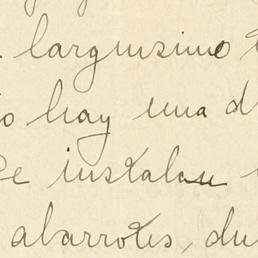 larguisimo
o hay una d
Se instalan
abarrotes, du